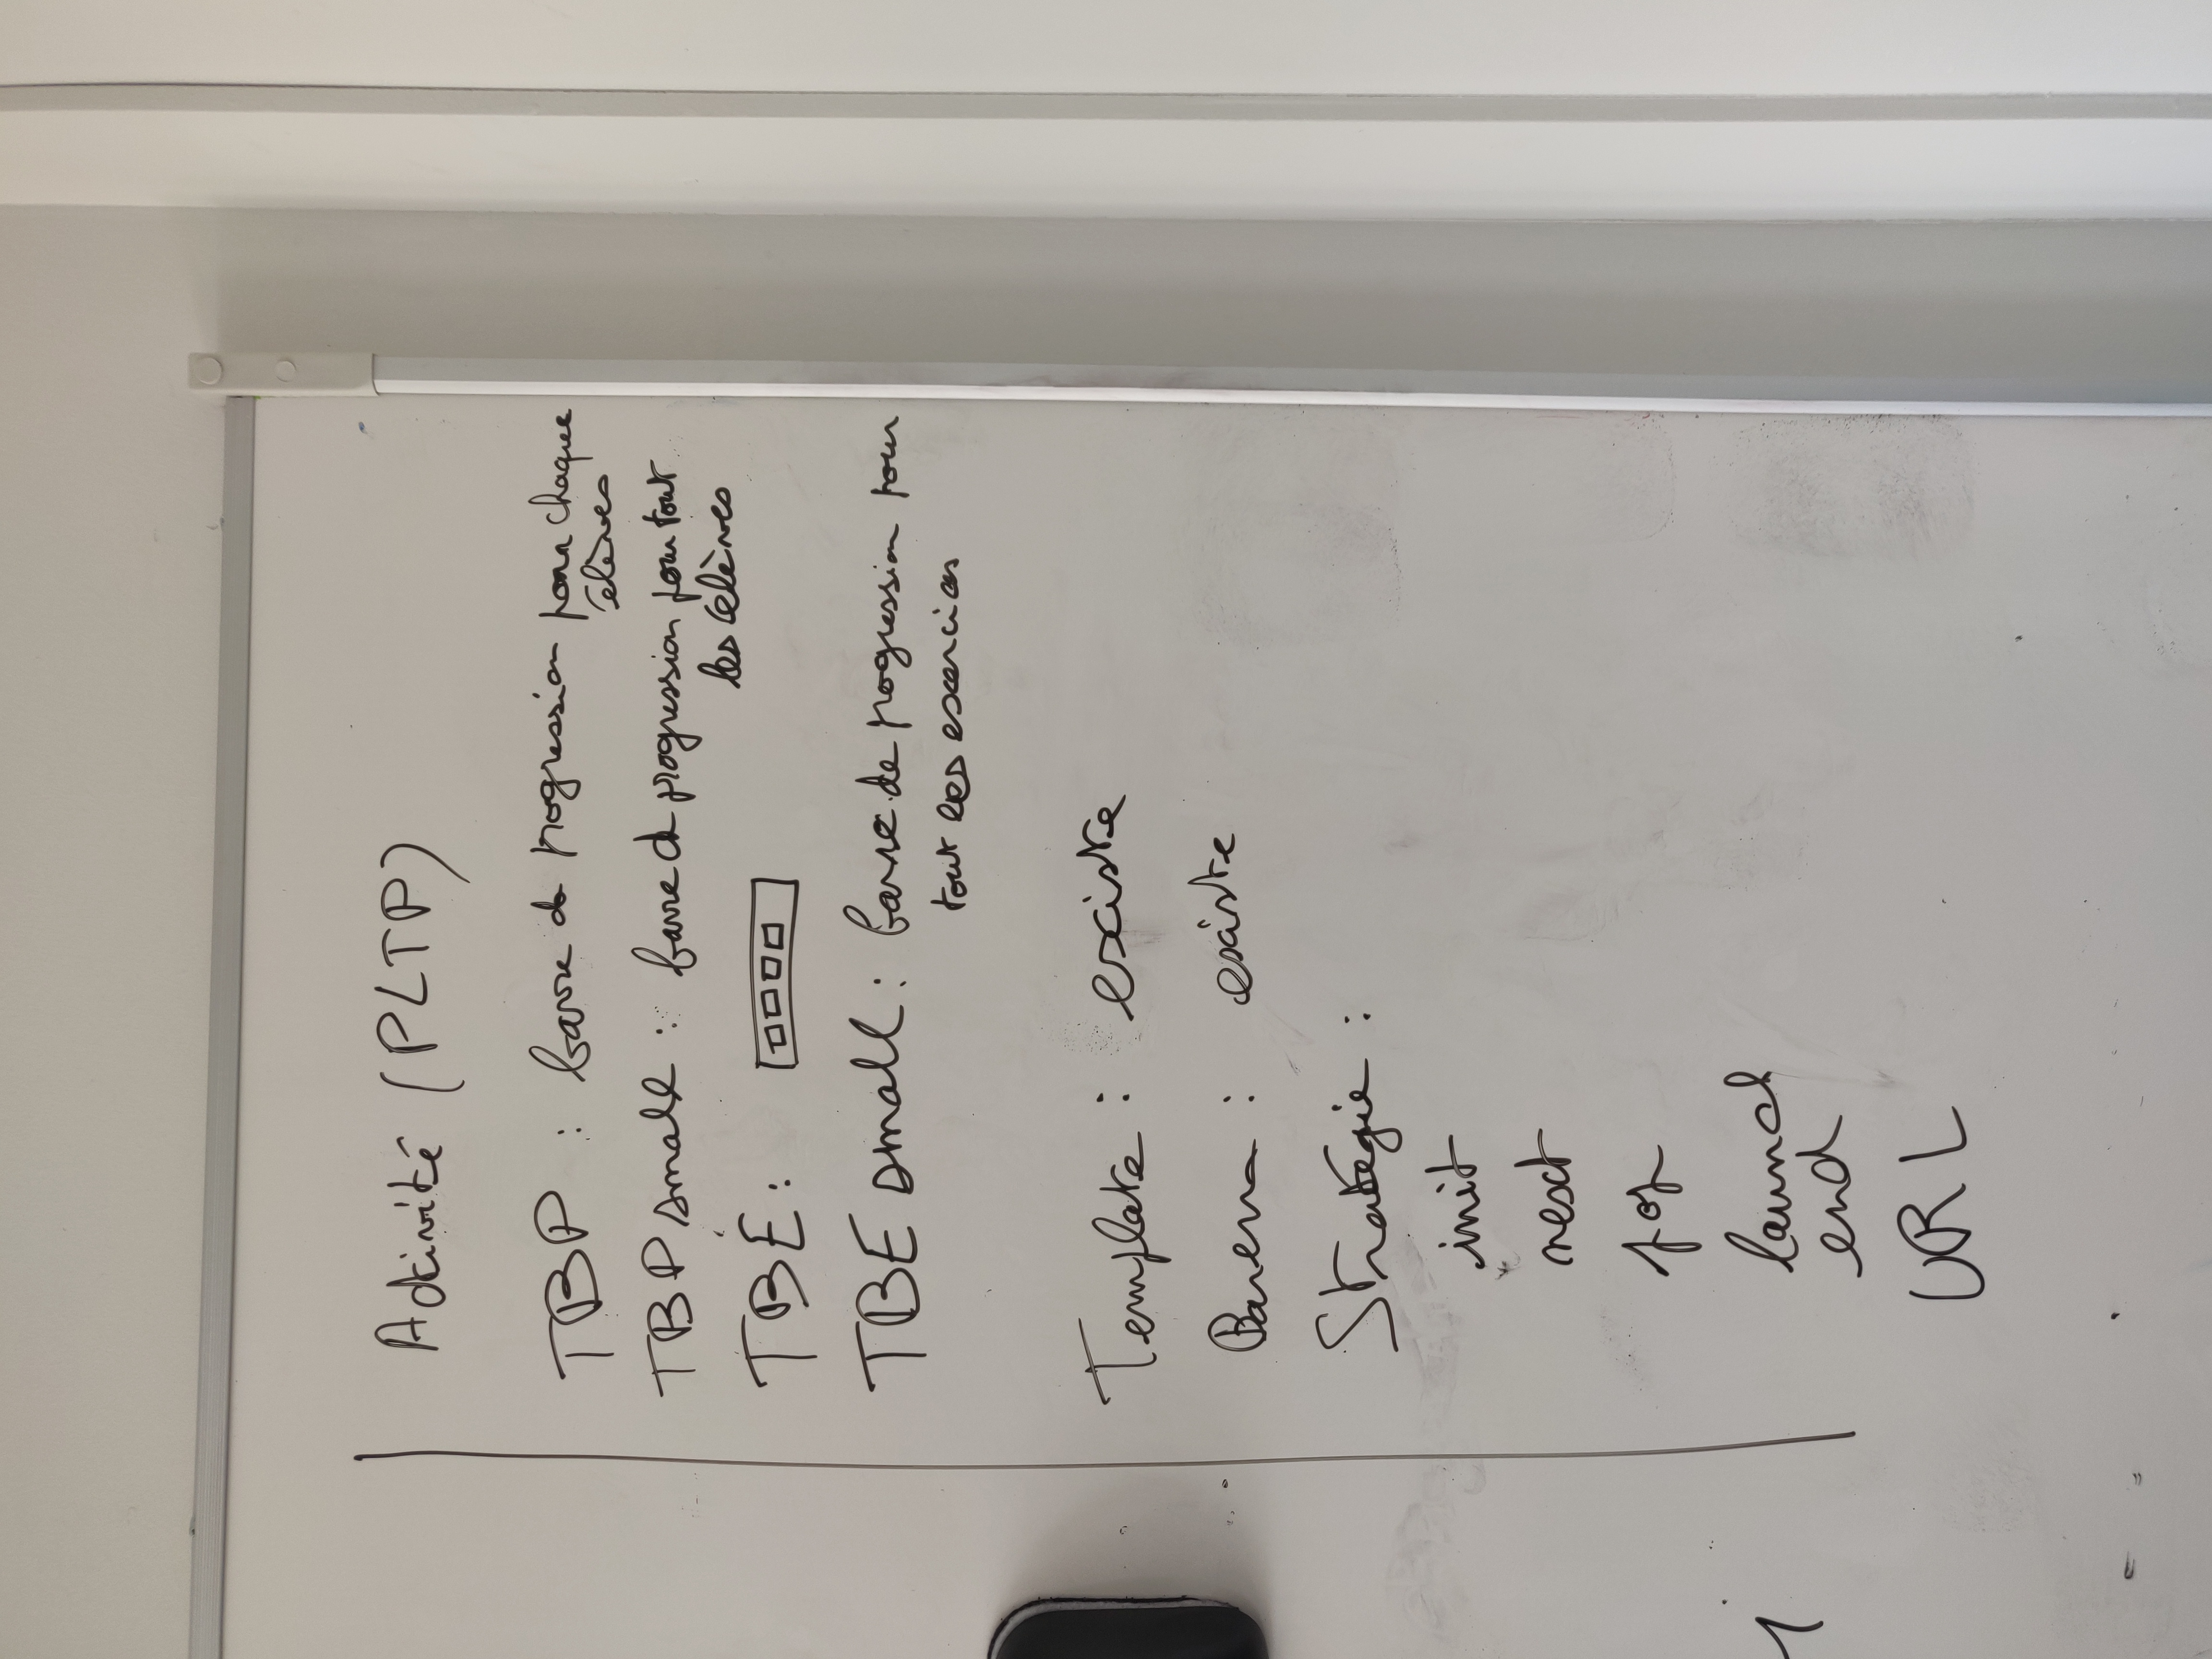 Activité (PLTP)
TBP : barre de progression pour chaque
élèves
TBP small : barre de progression pour tout
les élèves
TBE :
TBE small : barre de progression pour
tout les exercices
Template : existe
: existe
Stratégie :
init
next
pop
launch
end
URL